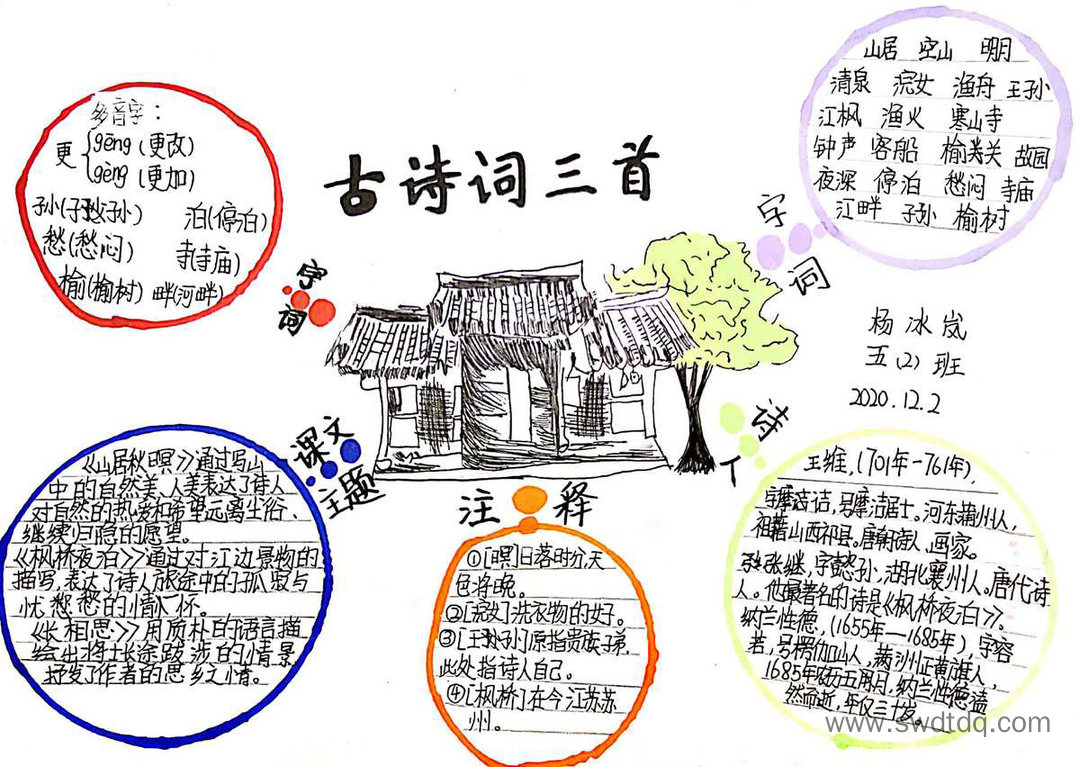 古诗词三首
多音字：
更
gēng(更改)
gèng(更加)
孙(子孙)
泊(停泊)
愁(愁闷)
寺(寺庙)
榆(榆树) 畔(河畔)
字词
山居 空山 明月
清泉 浣女 渔舟 王孙
江枫 渔火 寒山寺
钟声 客船 榆关 故园
夜深 停泊 愁闷 寺庙
江畔 子孙 榆树
字词
杨冰岚
五(2)班
2020.12.2
课文
主题
《山居秋暝》通过写山
中的自然美、人美表达了诗人
对自然的热爱和希望远离尘俗、
继续归隐的愿望。
《枫桥夜泊》通过对江边景物的
描写,表达了诗人旅途中的孤寂与
忧愁愁的情怀。
《长相思》用质朴的语言描
绘出将士长途跋涉的情景
抒发了作者的思乡之情。
注释
①[暝]日落时分,天
色将晚。
②[浣女]洗衣物的女子。
③[王孙]原指贵族子弟,
此处指诗人自己。
④[枫桥]在今江苏苏
州。
诗人
王维,(701年-761年),
字摩诘,号摩诘居士。河东蒲州人,
祖籍山西祁县。唐朝诗人,画家。
张继,字懿孙,湖北襄州人。唐代诗
人。他最著名的诗是《枫桥夜泊》。
纳兰性德,(1655年—1685年),字容
若,号楞伽山人,满洲正黄旗人,
1685年 纳兰性德溘
然而逝,年仅三十岁。
www.swdtdq.com